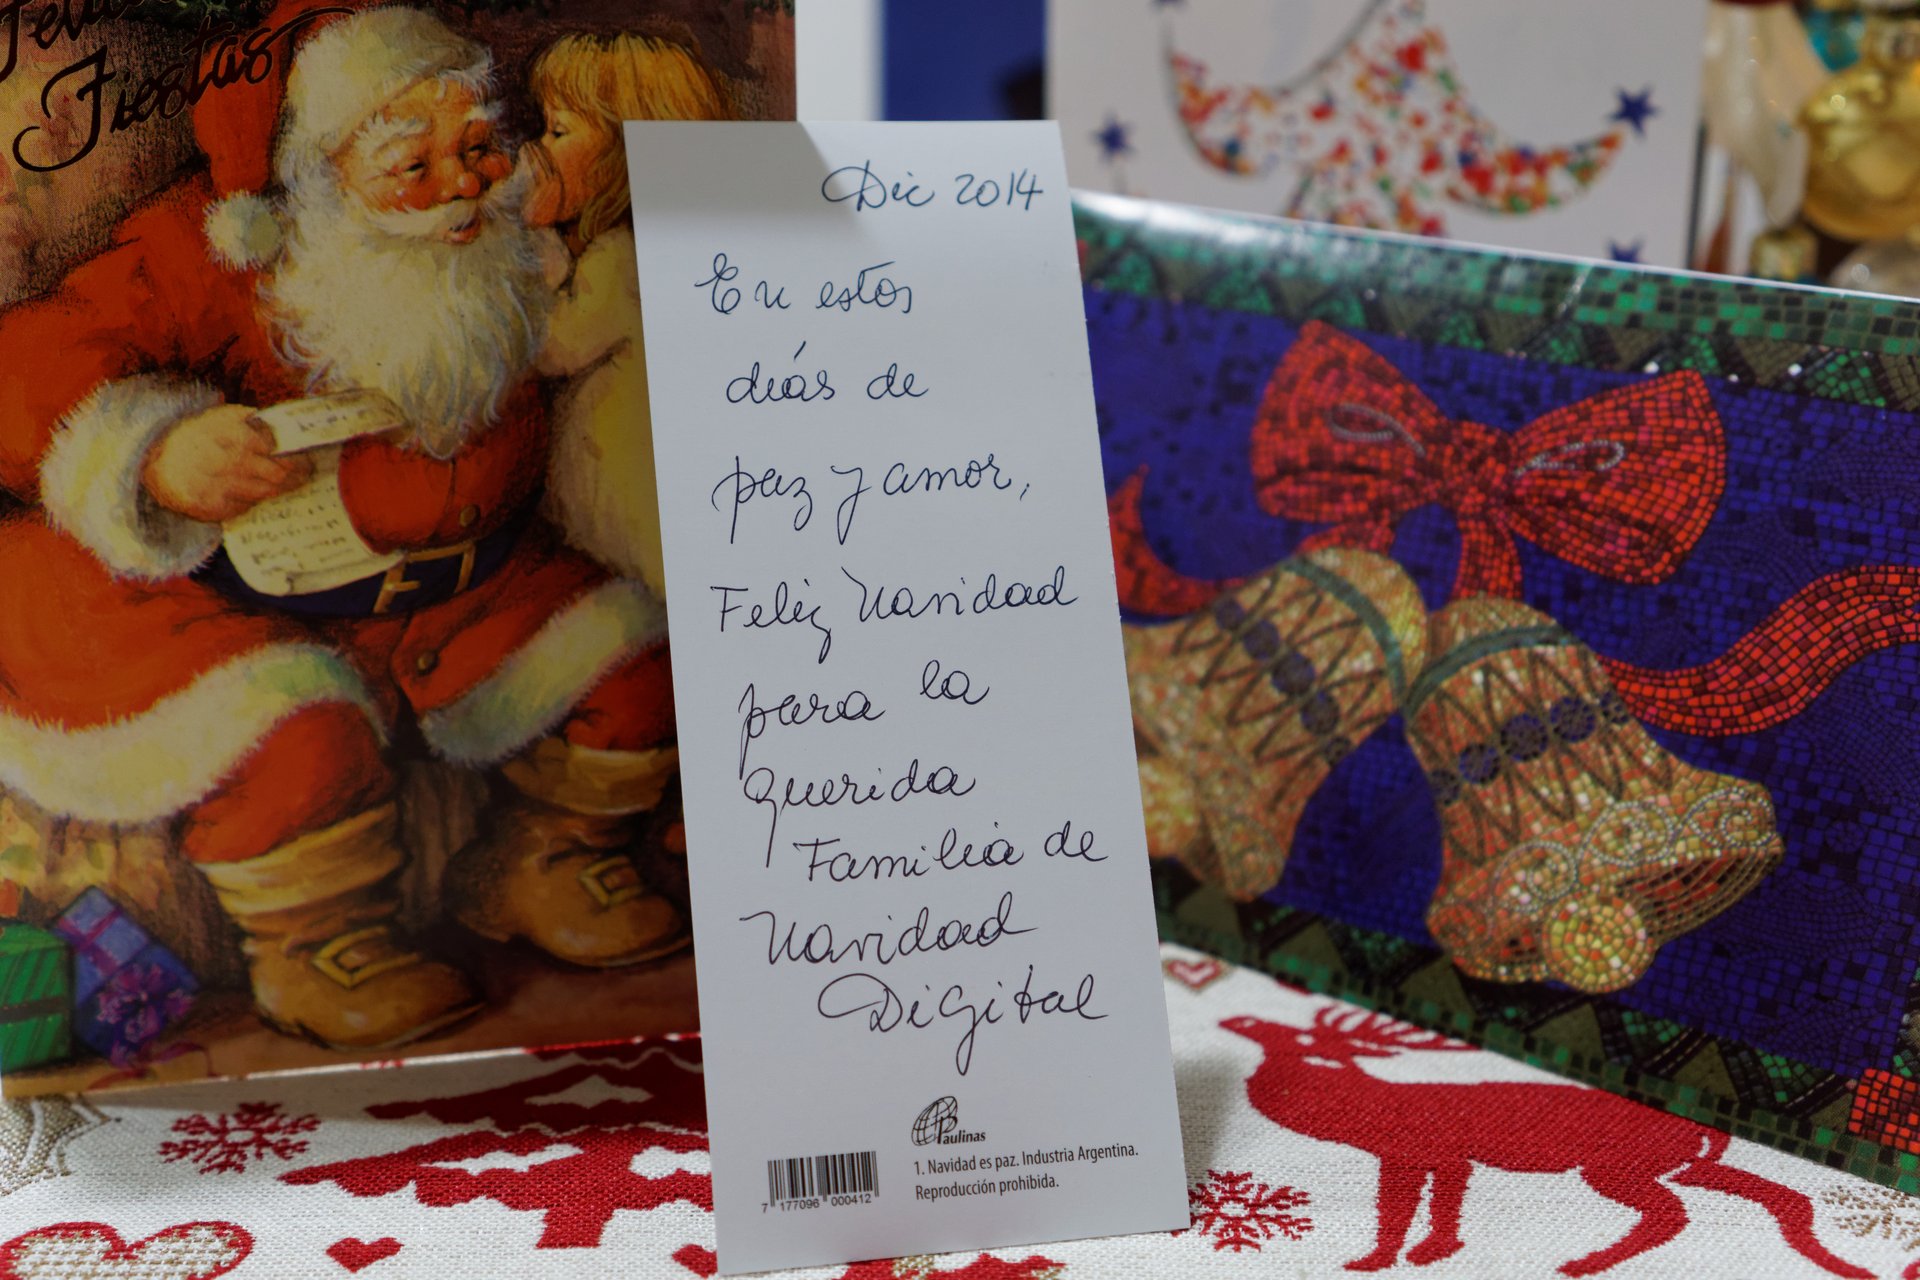 Feliz
Fiestas
Dic 2014
En estos
días de
paz y amor,
Feliz Navidad
para la
querida
Familia de
Navidad
Digital
Paulinas
1. Navidad es paz. Industria Argentina.
Reproducción prohibida.
7 177096 000412